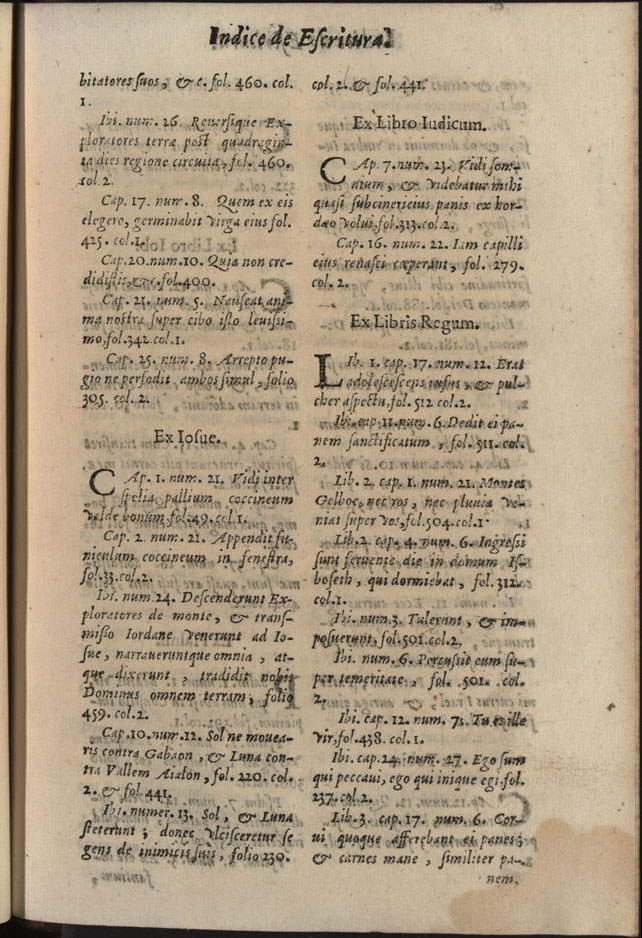 Indice de Escritura.
bitatores suos, & c. fol. 460. col.
1.
Ibi. num. 26. Reuersique Ex-
ploratores terræ post quadragin-
ta dies regione circuita, fol. 460.
col. 2.
Cap. 17. num. 8. Quem ex eis
elegero, germinabit virga eius fol.
425. col. 1.
Cap. 20. num. 10. Quia non cre-
didistis, & c. fol. 400.
Cap. 21. num. 5. Nauseat ani-
ma nostra super cibo isto leuissi-
mo, fol. 342. col. 1.
Cap. 25. num. 8. Arrepto pu-
gione perfodit ambos simul, folio
305. col. 2.
Ex Iosue.
CAp. 1. num. 21. Vidi inter
spolia pallium coccineum
valde bonum, fol. 49. col. 1.
Cap. 2. num. 21. Appendit fu-
niculum coccineum in fenestra,
fol. 33. col. 2.
Ibi. num. 24. Descenderunt Ex-
ploratores de monte, & trans-
misso Iordane venerunt ad Io-
sue, narraueruntque omnia, at-
que dixerunt, tradidit nobis
Dominus omnem terram, folio
459. col. 2.
Cap. 10. num. 12. Sol ne mouea-
ris contra Gabaon, & Luna con-
tra Vallem Aialon, fol. 220. col.
2. & fol. 441.
Ibi. numer. 13. Sol, & Luna
steterunt; donec vlcisceretur se
gens de inimicis suis, folio 230.
col. 2. & fol. 441.
Ex Libro Iudicum.
CAp. 7. num. 23. Vidi som-
nium, & videbatur mihi
quasi subcinericius panis ex hor-
dæo volui, fol. 313. col. 2.
Cap. 16. num. 22. Iam capilli
eius renasci cœperant, fol. 279.
col. 2.
Ex Libris Regum.
LIb. 1. cap. 17. num. 12. Erat
adolescescens rufus, & pul-
cher aspectu, fol. 512 col. 2.
Ibi. cap 11. num. 6. Dedit ei pa-
nem sanctificatum, fol. 511. col.
2.
Lib. 2. cap. 1. num. 21. Montes
Gelboe, nec ros, nec pluuia ve-
niat super vos, fol. 504. col. 1.
Lib. 2. cap. 4. num. 6. Ingressi
sunt feruente die in domum Is-
boseth, qui dormiebat, fol. 312.
col. 1.
Ibi. num. 3. Tulerunt, & im-
posuerunt, fol. 501. col. 2.
Ibi. num. 6. Percussit eum su-
per temeritate, fol. 501. col.
2.
Ibi. cap. 12. num. 7. Tu es ille
vir, fol. 438. col. 1.
Ibi. cap. 24. num. 27. Ego sum
qui peccaui, ego qui inique egi. fol.
237. col. 2.
Lib. 3. cap. 17. num. 6. Cor-
ui quoque afferebant ei panes;
& carnes mane, similiter pa-
nem,